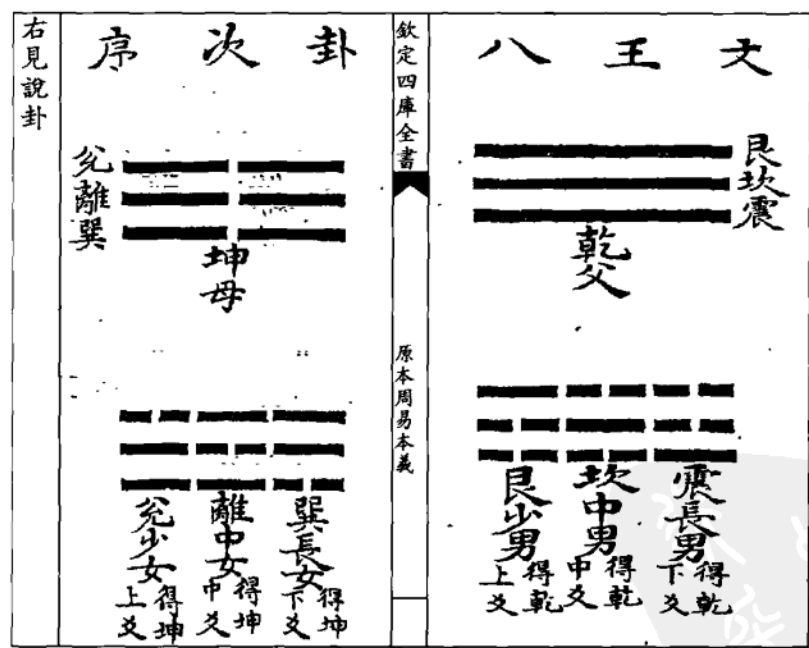 文王八
艮坎震
乾父
震長男
得乾
下爻
坎中男
得乾
中爻
艮少男
得乾
上爻
欽定四庫全書
原本周易本義
卦次序
坤母
兌離巽
巽長女
得坤
下爻
離中女
得坤
中爻
兌少女
得坤
上爻
右見說卦